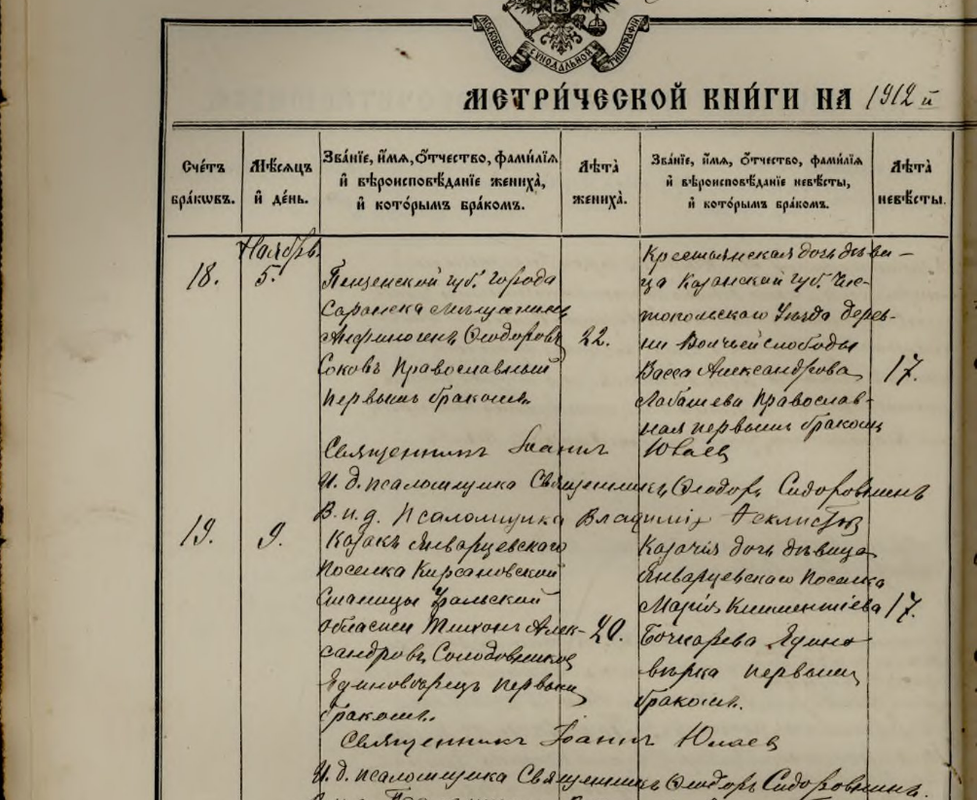 МОСКОВСКОЙ СУНОДАЛЬНОЙ ТИПОГРАФІИ
МЕТРИ́ЧЕСКОЙ КНИ́ГИ НА 1912 й
Сче́тъ бра́кѡвъ.
Мѣ́сѧцъ и҆ де́нь.
Зва́нїе, и҆́мѧ, ѻ҆́тчество, фами́лїѧ и҆ вѣроисповѣ́данїе жениха̀, и҆ кото́рымъ бра́комъ.
Лѣ́та жениха̀.
Зва́нїе, и҆́мѧ, ѻ҆́тчество, фами́лїѧ и҆ вѣроисповѣ́данїе невѣ́сты, и҆ кото́рымъ бра́комъ.
Лѣ́та невѣ́сты.
Ноябрь
18.
5.
Пензенской губ. города
Саранска мѣщанинъ
Анфиногенъ Ѳеодоровъ
Соковъ Православный
первымъ бракомъ.
22.
Крестьянская дочь дѣви-
ца Казанской губ. Чис-
топольскаго Уѣзда дерев-
ни Волчьей слободы
Васса Александрова
Лабашева Православ-
ная первымъ бракомъ
17.
Священникъ Іоаннъ Юлаев
И. д. псаломщика Священникъ Ѳеодоръ Сидоровнинъ
В. и. д. Псаломщика Владиміръ
19.
9.
Казакъ Январцевскаго
Поселка Кирсановской
Станицы Уральской
области Тихонъ Алек-
сандровъ Солодовников
Единовѣрецъ первымъ
бракомъ.
20.
Казачья дочь дѣвица
Январцевскаго Поселка
Марія Климентіева
Бочкарева Едино-
вѣрка первымъ
бракомъ.
17.
Священникъ Іоаннъ Юлаев
И. д. псаломщика Священникъ Ѳеодоръ Сидоровнинъ.